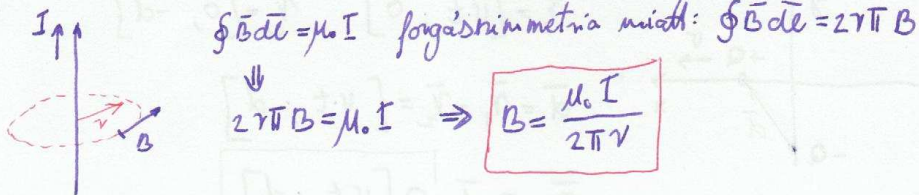 I ∮B̄dl̄ = μ₀I forgásszimmetria miatt: ∮B̄dl̄ = 2rπB
⇓
2rπB = μ₀I ⇒ B = μ₀I / 2πr
r
B